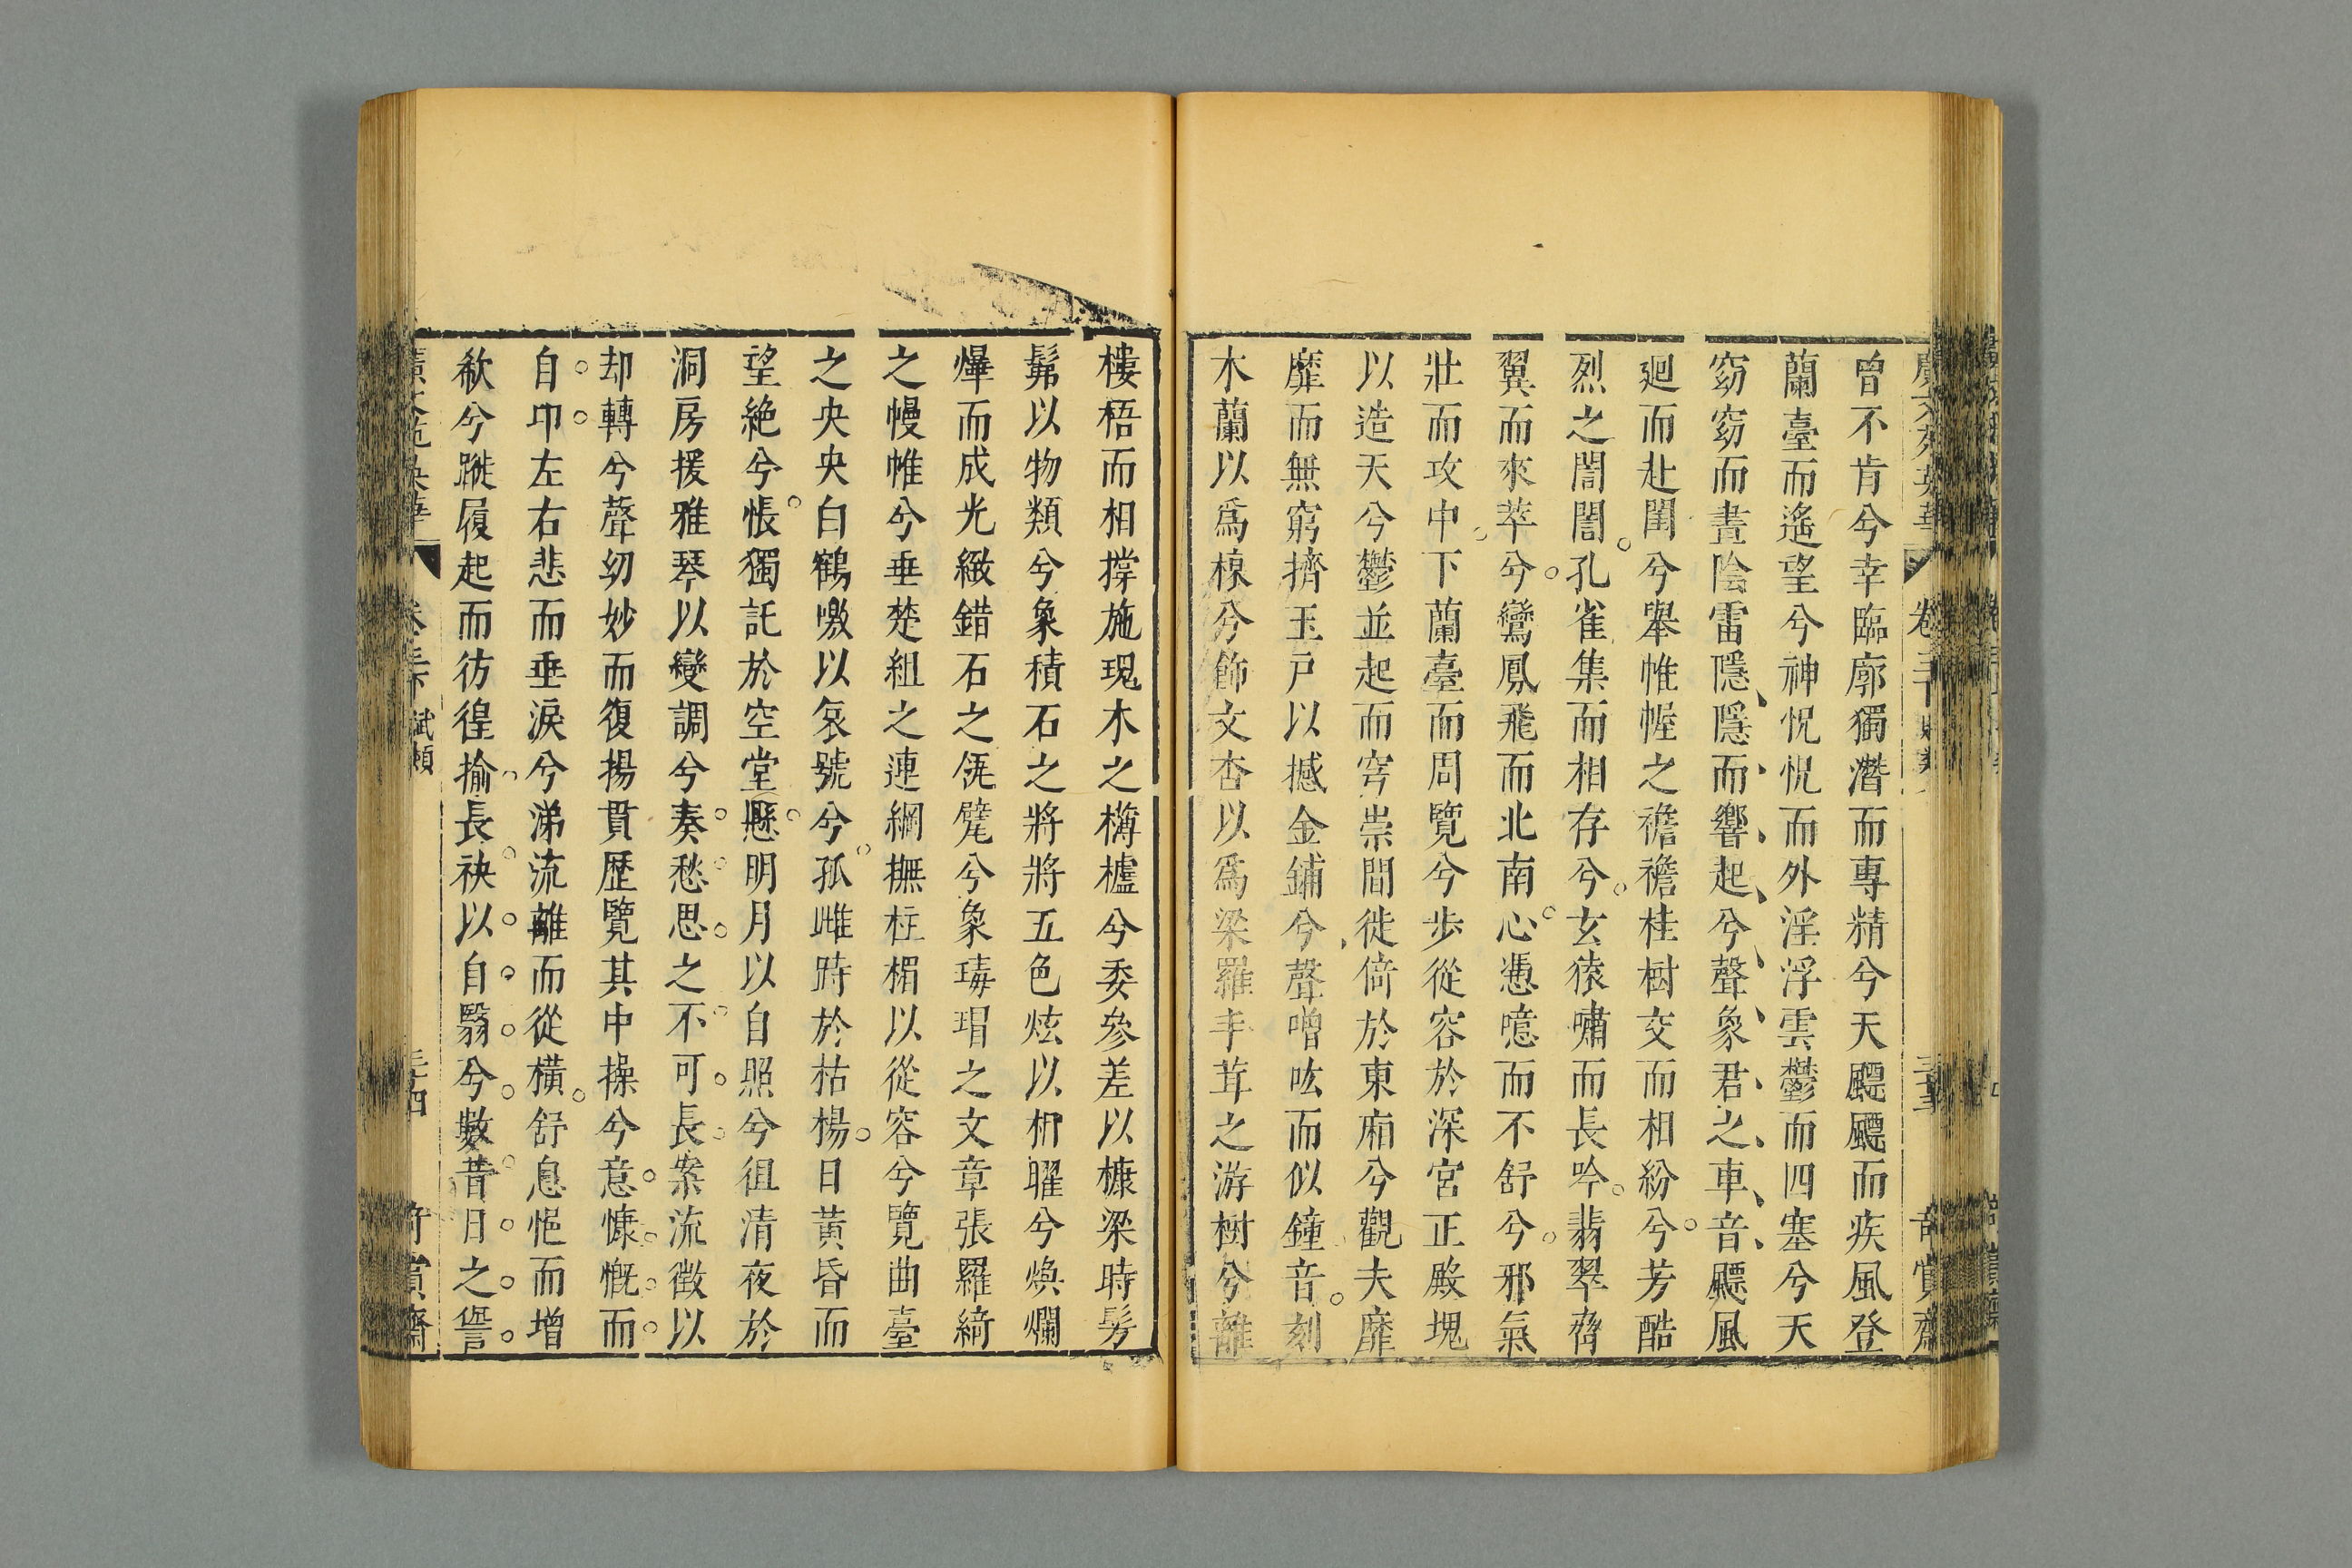 曾不肯兮幸臨廓獨潛而專精兮天飃飃而疾風登
蘭臺而遙望兮神怳怳而外淫浮雲鬱而四塞兮天
窈窈而晝陰雷隱隱而響起兮聲象君之車音飃風
廻而赴閨兮舉帷幄之襜襜桂樹交而相紛兮芳酷
烈之誾誾孔雀集而相存兮玄猿嘯而長吟翡翠脅
翼而來萃兮鸞鳳飛而北南心憑噫而不舒兮邪氣
壯而攻中下蘭臺而周覽兮步從容於深宮正殿塊
以造天兮鬱並起而穹崇間徙倚於東廂兮觀夫靡
靡而無窮擠玉戶以撼金鋪兮聲噌吰而似鐘音刻
木蘭以爲榱兮飾文杏以爲梁羅丰茸之游樹兮離
樓梧而相撐施瑰木之欂櫨兮委參差以槺梁時髣
髴以物類兮象積石之將將五色炫以相曜兮煥爛
爗而成光緻錯石之瓴甓兮象瑇瑁之文章張羅綺
之幔帷兮垂楚組之連綱撫柱楣以從容兮覽曲臺
之央央白鶴噭以哀號兮孤雌跱於枯楊日黃昏而
望絶兮悵獨託於空堂懸明月以自照兮徂清夜於
洞房援雅琴以變調兮奏愁思之不可長案流徵以
却轉兮聲幼妙而復揚貫歷覽其中操兮意慷慨而
自卬左右悲而垂淚兮涕流離而從橫舒息悒而增
欷兮蹝履起而彷徨揄長袂以自翳兮數昔日之諐